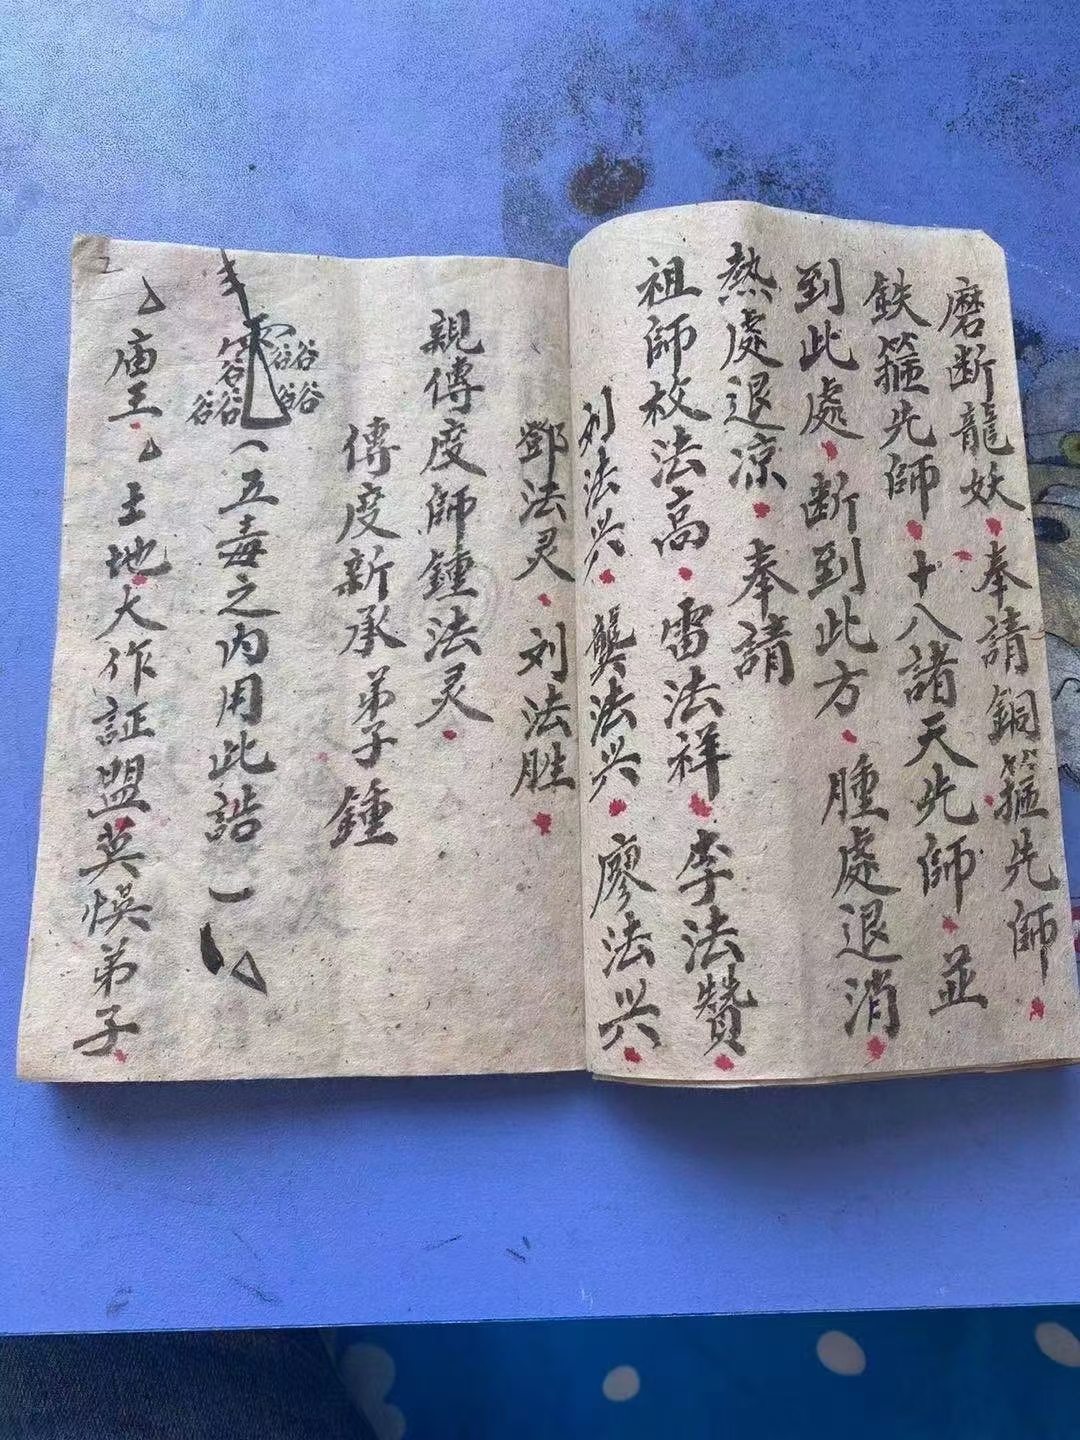 磨断龍妖奉請銅箍先師
鉄箍先師十八諸天先師並
到此處断到此方腫處退消
熱處退凉 奉請
祖師枚法高雷法祥李法贊
刘法兴龔法兴廖法兴
鄧法灵刘法胜
親傳度師鍾法灵
傳度新承弟子鍾
五毒之内用此誥
庙王土地大作証盟英悞弟子